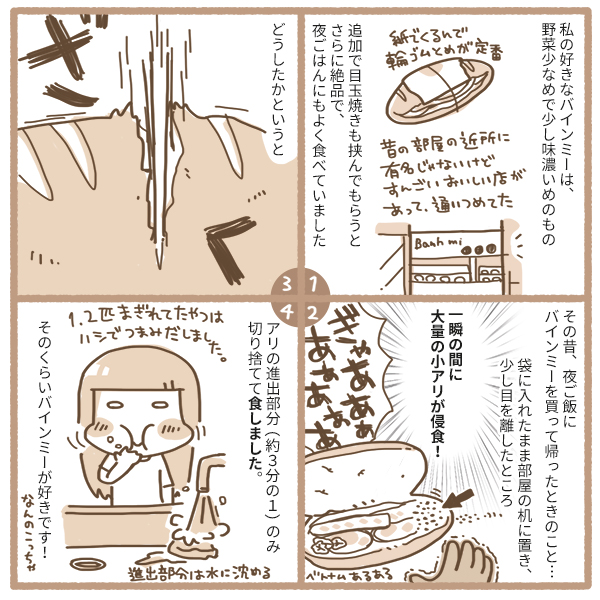 私の好きなバインミーは、
野菜少なめで少し味濃いめのもの
紙でくるんで
輪ゴムとめが定番
昔の部屋の近所に
有名じゃないけど
すんごいおいしい店が
あって、通いつめてた
Banh mi
追加で目玉焼きも挟んでもらうと
さらに絶品で、
夜ごはんにもよく食べていました
1
その昔、夜ご飯に
バインミーを買って帰ったときのこと…
袋に入れたまま部屋の机に置き、
少し目を離したところ
一瞬の間に
大量の小アリが侵食！
ぎゃあああぁ
あぁあぁあ
ベトナムあるある
2
どうしたかというと
ざ
く
3
アリの進出部分（約３分の１）のみ
切り捨てて食しました。
1、2匹まぎれてたやつは
ハシでつまみだしました。
進出部分は水に沈める
そのくらいバインミーが好きです！
なんのこっちゃ
4